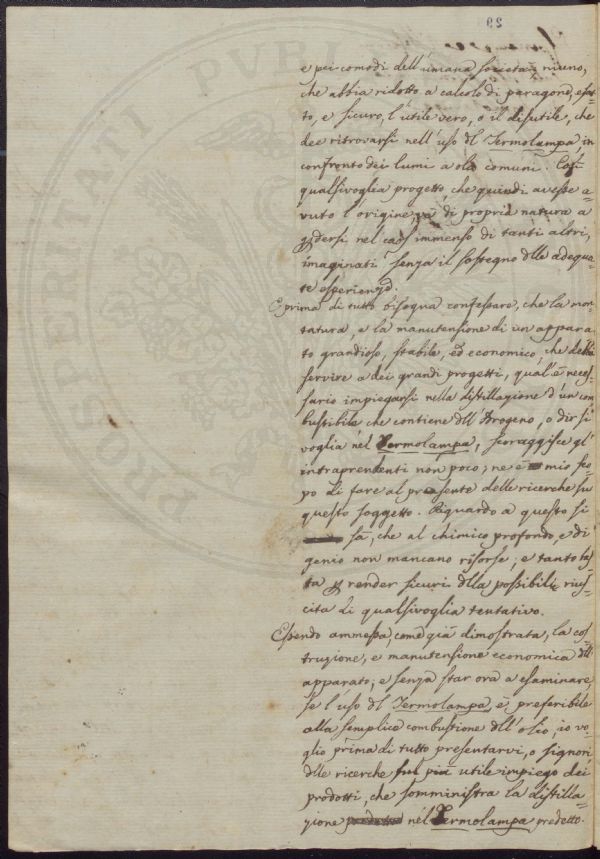 29
e pei comodi dell'umana società; niuno,
che abbia ridotto a calcolo di paragone, esat-
to, e sicuro, l'utile vero, o il disutile, che
dee ritrovarsi nell'uso dl Termolampa, in
confronto dei lumi a olio comuni. Così
qualsivoglia progetto, che quindi avesse a-
vuto l'origine, va di propria natura a
pdersi nel caos immenso di tanti altri,
imaginati senza il sostegno dlle adequa-
te esperienze.
E prima di tutto bisogna confessare, che la mon-
tatura, e la manutensione di un appara-
to grandioso, stabile, ed economico, che debba
servire a dei grandi progetti, qual'è neces-
sario impiegarsi nella distillazione d'un com
bustibile che contiene dll'Idrogeno, o dir si
voglia nel Termolampa, scoraggisce gl'
intraprendenti non poco; ne è mio sco-
po di fare al presente delle ricerche su
questo soggetto. Riguardo a questo si
sà, che al chimico profondo, e di
genio non mancano risorse; e tanto bas-
ta p render sicuri dlla possibile rius-
cita di qualsivoglia tentativo.
Essendo ammessa, come già dimostrata, la cos-
truzione, e manutensione economica dll'
apparato; e senza star ora a esaminare,
se l'uso dl Termolampa, è preferibile
alla semplice combustione dll'olio, io vo-
glio prima di tutto presentarvi, o signori,
dlle ricerche sul più utile impiego dei
prodotti, che somministra la distilla-
zione nel Termolampa predetto.
PVBLI